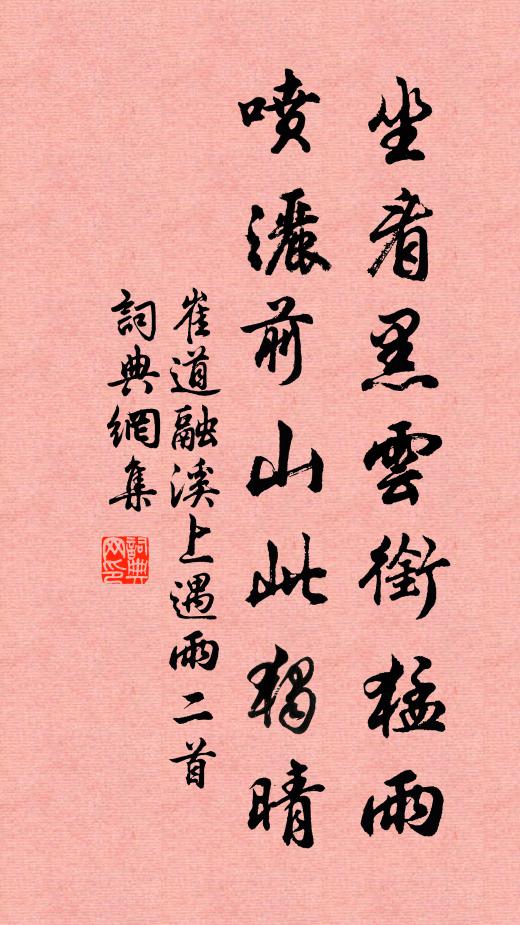 坐看黑雲銜猛雨
噴灑前山此獨晴
崔道融溪上遇雨二首
詞典網集
詞典網印